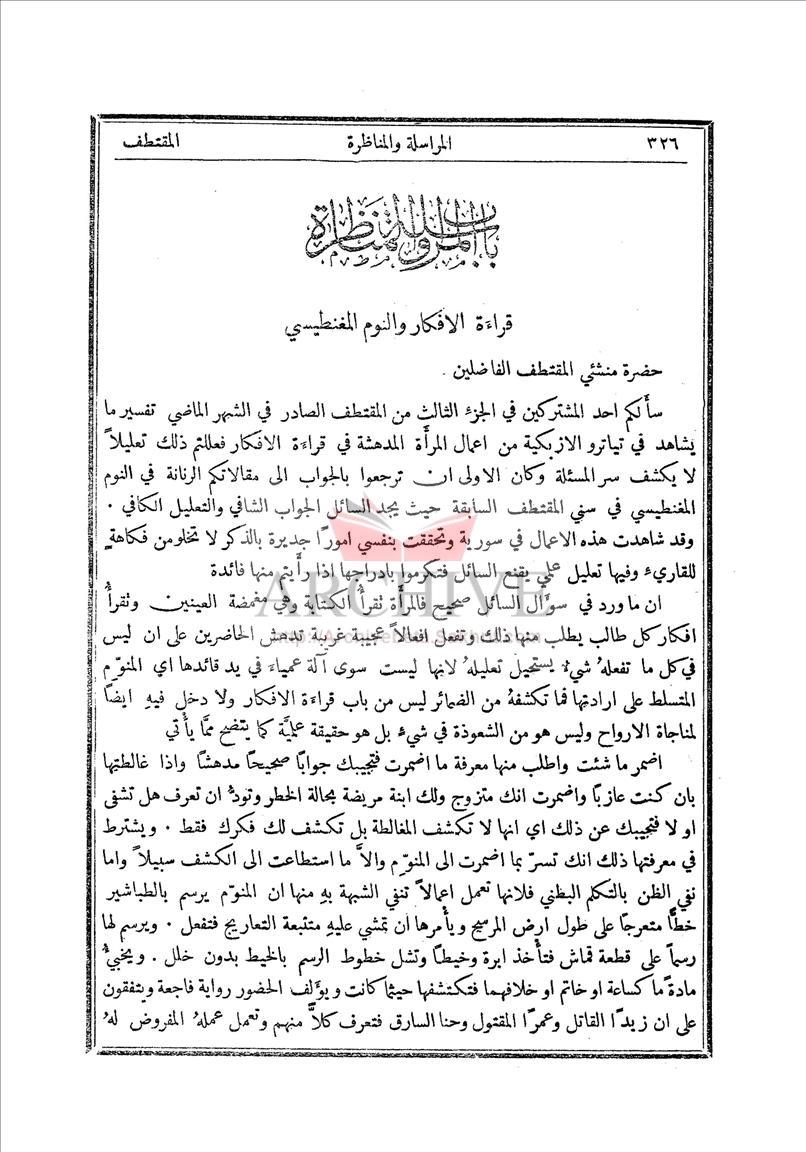 ٣٢٦ المراسلة والمناظرة المقتطف
باب المراسلة والمناظرة
قراءة الافكار والنوم المغنطيسي
حضرة منشئي المقتطف الفاضلين .
سألكم احد المشتركين في الجزء الثالث من المقتطف الصادر في الشهر الماضي تفسير ما
يشاهد في تياترو الازبكية من اعمال المرأة المدهشة في قراءة الافكار فعللتم ذلك تعليلاً
لا يكشف سر المسئلة وكان الاولى ان ترجعوا بالجواب الى مقالاتكم الرنانة في النوم
المغنطيسي في سني المقتطف السابقة حيث يجد السائل الجواب الشافي والتعليل الكافي .
وقد شاهدت هذه الاعمال في سورية وتحققت بنفسي امورًا جديرة بالذكر لا تخلو من فكاهةٍ
للقارىء وفيها تعليل علمي يقنع السائل فتكرموا بادراجها اذا رأيتم منها فائدة
ARCHIVE
ان ما ورد في سؤال السائل صحيح فالمرأة تقرأُ الكتابة وهي مغمضة العينين وتقرأُ
افكار كل طالب يطلب منها ذلك وتفعل افعالاً عجيبة غريبة تدهش الحاضرين على ان ليس
في كل ما تفعلهُ شيءٌ يستحيل تعليله لانها ليست سوى آلة عمياء في يد قائدها اي المنوّم
المتسلط على ارادتها فما تكشفهُ من الضمائر ليس من باب قراءة الافكار ولا دخل فيهِ ايضًا
لمناجاة الارواح وليس هو من الشعوذة في شيء بل هو حقيقة علميَّة كما يتضح ممَّا يأتي
اضمر ما شئت واطلب منها معرفة ما اضمرت فتجيبك جوابًا صحيحًا مدهشًا واذا غالطتها
بان كنت عازبًا واضمرت انك متزوج ولك ابنة مريضة بحالة الخطر وتودُّ ان تعرف هل تشفى
او لا فتجيبك عن ذلك اي انها لا تكشف المغالطة بل تكشف لك فكرك فقط . ويشترط
في معرفتها ذلك انك تسرّ بما اضمرت الى المنوّم والاَّ ما استطاعت الى الكشف سبيلاً واما
نفي الظن بالتكلم البطني فلانها تعمل اعمالاً تنفي الشبهة بهِ منها ان المنوّم يرسم بالطباشير
خطًّا متعرجًا على طول ارض المرسح ويأمرها ان تمشي عليهِ متتبعة التعاريج فتفعل . ويرسم لها
رسماً على قطعة قماش فتأخذ ابرة وخيطًا وتشل خطوط الرسم بالخيط بدون خلل . ويخبيءُ
مادةً ما كساعة او خاتم او خلافهما فتكتشفها حيثما كانت ويؤلف الحضور رواية فاجعة ويتفقون
على ان زيدًا القاتل وعمرًا المقتول وحنا السارق فتعرف كلاًّ منهم وتعمل عملهُ المفروض لهُ